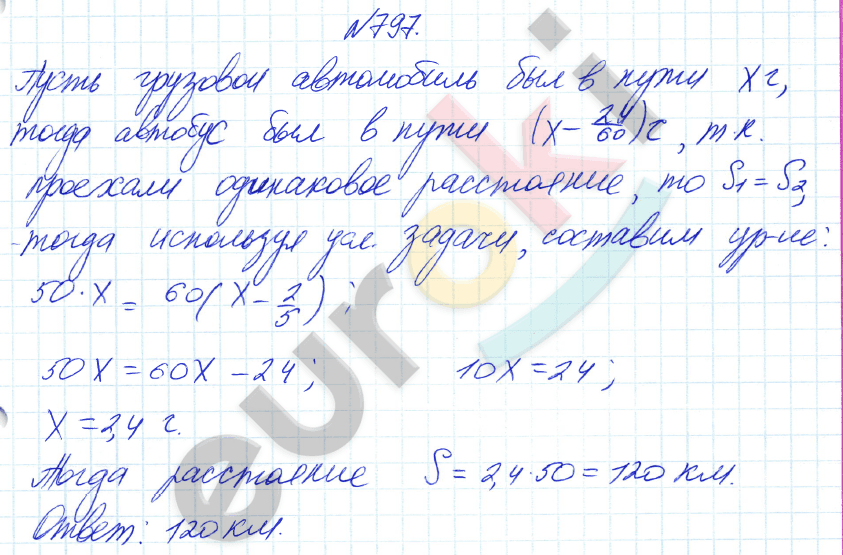 №797.
Пусть грузовой автомобиль был в пути х г,
тогда автобус был в пути (х - 24/60) г, т.к.
проехали одинаковое расстояние, то S₁ = S₂,
тогда используя усл. задачи, составим ур-ие:
50·х = 60(х - 2/5);
50х = 60х - 24; 10х = 24;
х = 2,4 г.
Тогда расстояние S = 2,4·50 = 120 км.
Ответ: 120 км.
euroki